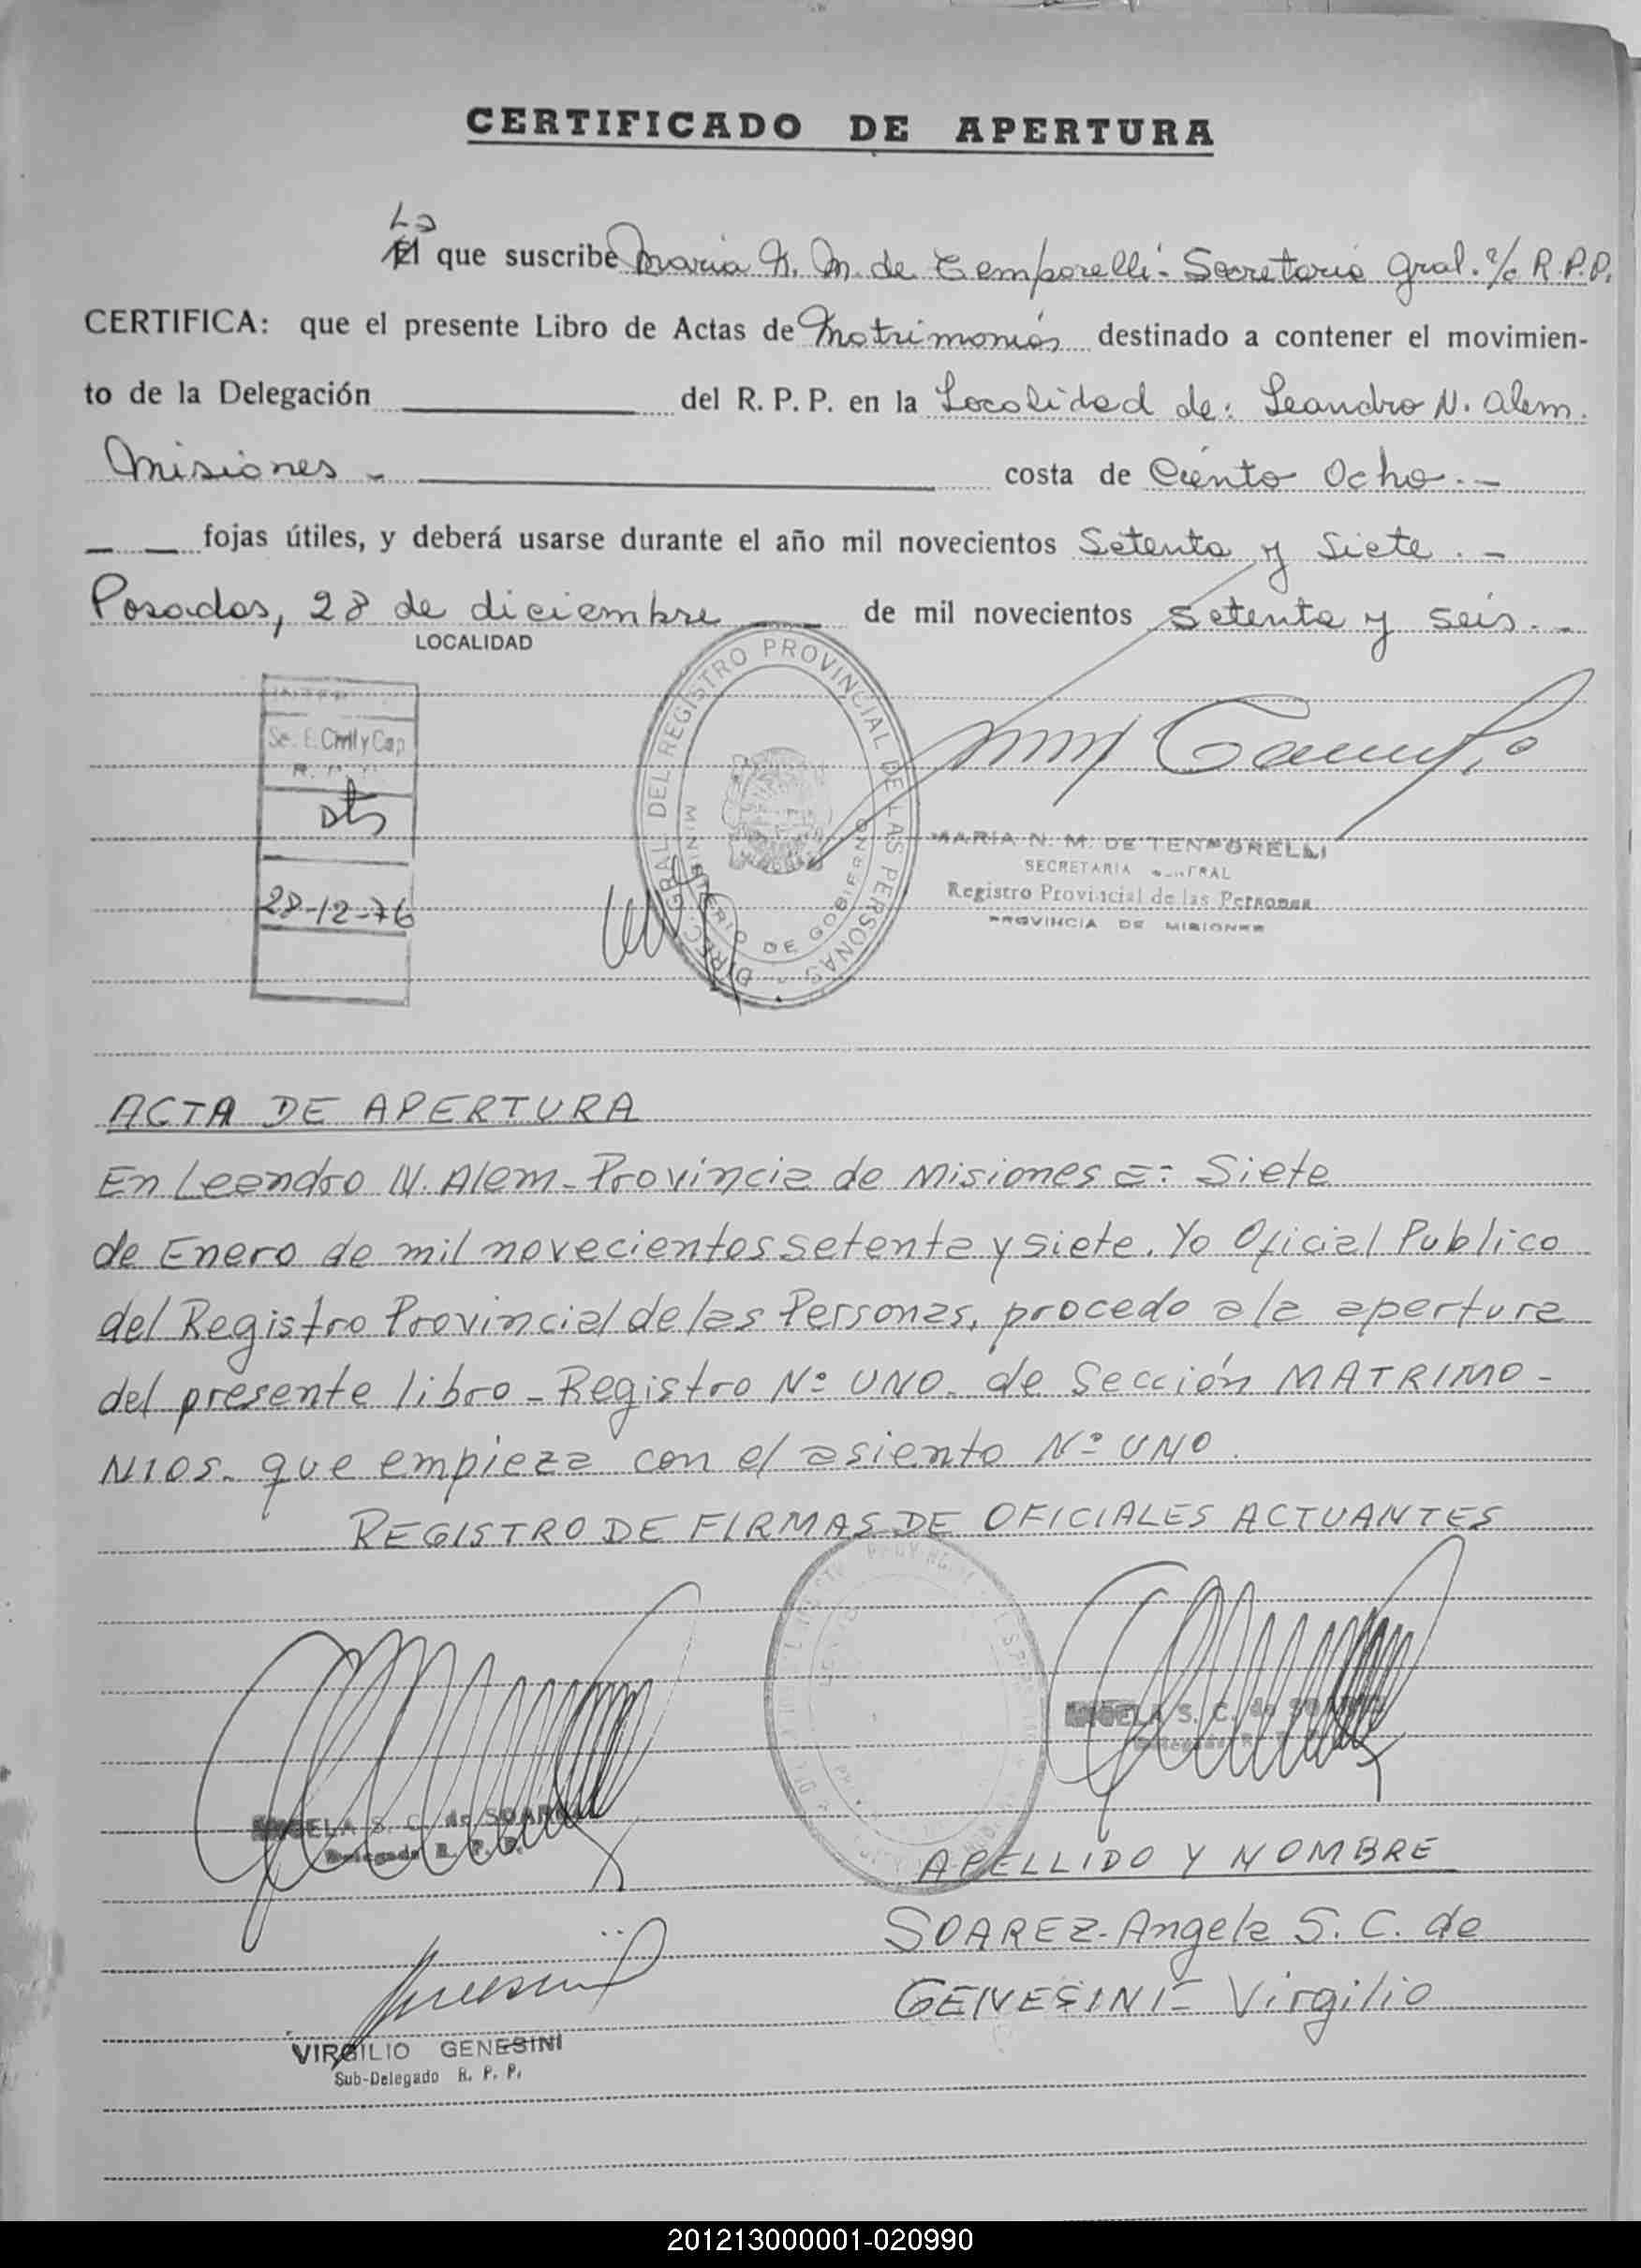 CERTIFICADO DE APERTURA
La
El que suscribe Maria N. M. de Temporelli - Secretaria Gral. a/c R.P.P.
CERTIFICA: que el presente Libro de Actas de Matrimonios destinado a contener el movimien-
to de la Delegación del R. P. P. en la Localidad de: Leandro N. Alem.
Misiones - costa de Ciento Ocho.-
fojas útiles, y deberá usarse durante el año mil novecientos Setenta y Siete.-
Posadas, 28 de diciembre de mil novecientos Setenta y Seis.-
LOCALIDAD
DIREC. GRAL. DEL REGISTRO PROVINCIAL DE LAS PERSONAS
MINISTERIO DE GOBIERNO
Se. E. Civil y Cap
R. P. P.
28-12-76
MARIA N. M. DE TEMPORELLI
SECRETARIA GENERAL
Registro Provincial de las Personas
PROVINCIA DE MISIONES
ACTA DE APERTURA
En Leandro N. Alem - Provincia de Misiones a: Siete
de Enero de mil novecientos setenta y siete. Yo Oficial Publico
del Registro Provincial de las Personas, procedo a la apertura
del presente libro - Registro Nº UNO. de Sección MATRIMO-
NIOS. que empieza con el asiento Nº UNO.
REGISTRO DE FIRMAS DE OFICIALES ACTUANTES
ANGELA S. C. de SOAREZ
Delegada R. P. P.
ANGELA S. C. de SOAREZ
Delegada R. P. P.
APELLIDO Y NOMBRE
SOAREZ - Angela S. C. de
GENESINI - Virgilio
VIRGILIO GENESINI
Sub-Delegado R. P. P.
201213000001-020990